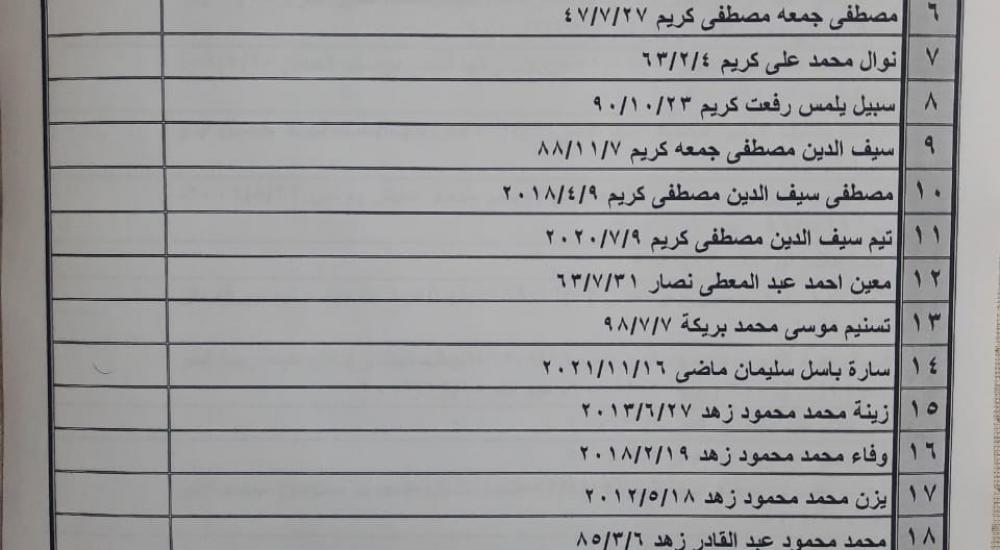 ٦ مصطفى جمعه مصطفى كريم ٤٧/٧/٢٧
٧ نوال محمد على كريم ٦٣/٢/٤
٨ سبيل يلمس رفعت كريم ٩٠/١٠/٢٣
٩ سيف الدين مصطفى جمعه كريم ٨٨/١١/٧
١٠ مصطفى سيف الدين مصطفى كريم ٢٠١٨/٤/٩
١١ تيم سيف الدين مصطفى كريم ٢٠٢٠/٧/٩
١٢ معين احمد عبد المعطى نصار ٦٣/٧/٣١
١٣ تسنيم موسى محمد بريكة ٩٨/٧/٧
١٤ سارة باسل سليمان ماضى ٢٠٢١/١١/١٦
١٥ زينة محمد محمود زهد ٢٠١٣/٦/٢٧
١٦ وفاء محمد محمود زهد ٢٠١٨/٢/١٩
١٧ يزن محمد محمود زهد ٢٠١٢/٥/١٨
١٨ محمد محمود عبد القادر زهد ٨٥/٣/٦